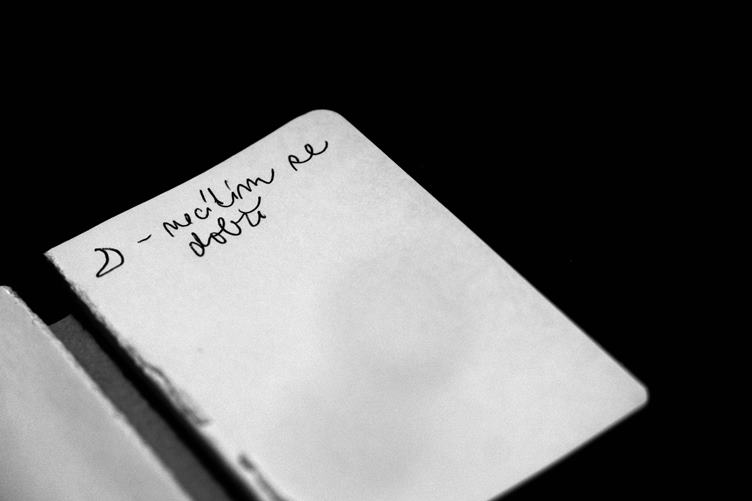 ☽ - necítím se
dobře